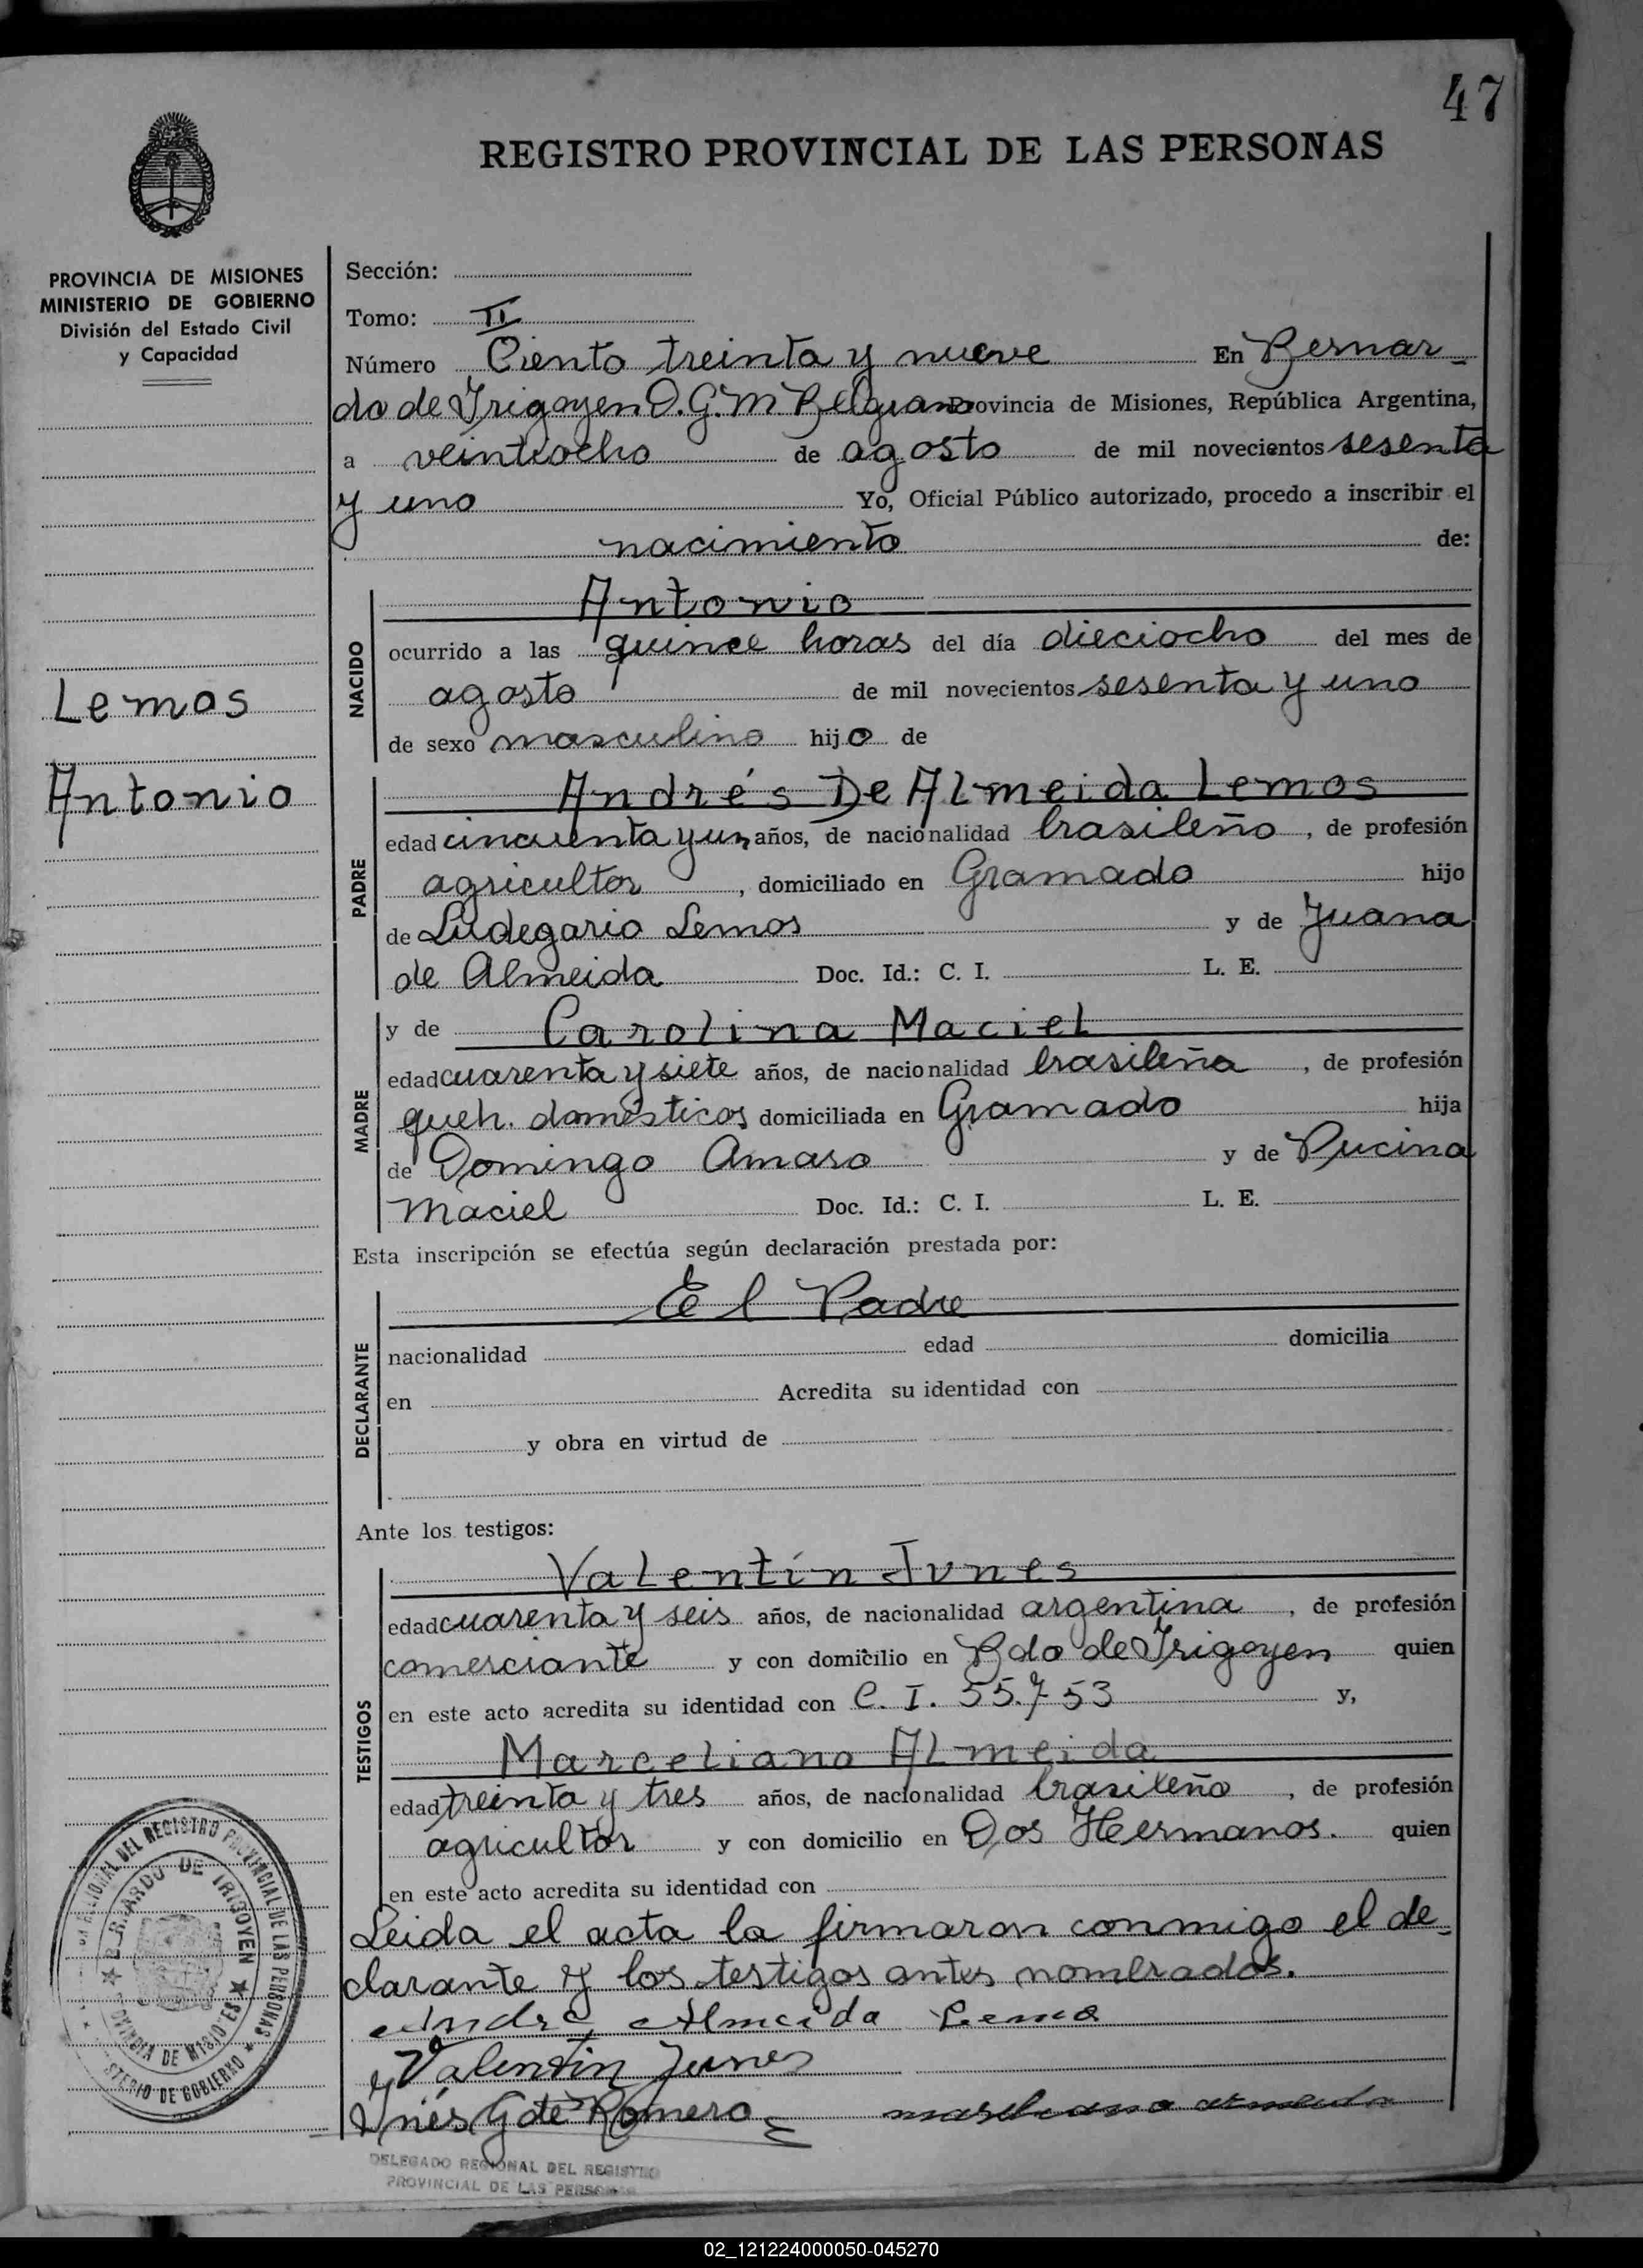 47
REGISTRO PROVINCIAL DE LAS PERSONAS
PROVINCIA DE MISIONES
MINISTERIO DE GOBIERNO
División del Estado Civil
y Capacidad
Lemos
Antonio
Sección:
Tomo: II
Número Ciento treinta y nueve En Bernar-
do de Irigoyen D.G.M Belgrano Provincia de Misiones, República Argentina,
a veintiocho de agosto de mil novecientos sesenta
y uno Yo, Oficial Público autorizado, procedo a inscribir el
nacimiento de:
NACIDO
Antonio
ocurrido a las quince horas del día dieciocho del mes de
agosto de mil novecientos sesenta y uno
de sexo masculino hijo de
PADRE
Andrés De Almeida Lemos
edad cincuenta y un años, de nacionalidad brasileño, de profesión
agricultor, domiciliado en Gramado hijo
de Ludegario Lemos y de Juana
de Almeida Doc. Id.: C. I. L. E.
MADRE
y de Carolina Maciel
edad cuarenta y siete años, de nacionalidad brasileña, de profesión
queh. domésticos domiciliada en Gramado hija
de Domingo Amaro y de
Maciel Doc. Id.: C. I. L. E.
Esta inscripción se efectúa según declaración prestada por:
DECLARANTE
El Padre
nacionalidad edad domicilia
en Acredita su identidad con
y obra en virtud de
Ante los testigos:
TESTIGOS
Valentín Junes
edad cuarenta y seis años, de nacionalidad argentina, de profesión
comerciante y con domicilio en Bdo de Irigoyen quien
en este acto acredita su identidad con C. I. 55.753 y,
Marceliano Almeida
edad treinta y tres años, de nacionalidad brasileño, de profesión
agricultor y con domicilio en Dos Hermanos. quien
en este acto acredita su identidad con
Leida el acta la firmaron conmigo el de-
clarante y los testigos antes nombrados.
Andre Almeida Lemo
Valentin Junes
Inés G de Romero
DELEGADO REGIONAL DEL REGISTRO
PROVINCIAL DE LAS PERSONAS
REGIONAL DEL REGISTRO PROVINCIAL DE LAS PERSONAS
BERNARDO DE IRIGOYEN
PROVINCIA DE MISIONES
MINISTERIO DE GOBIERNO
02_121224000050-045270